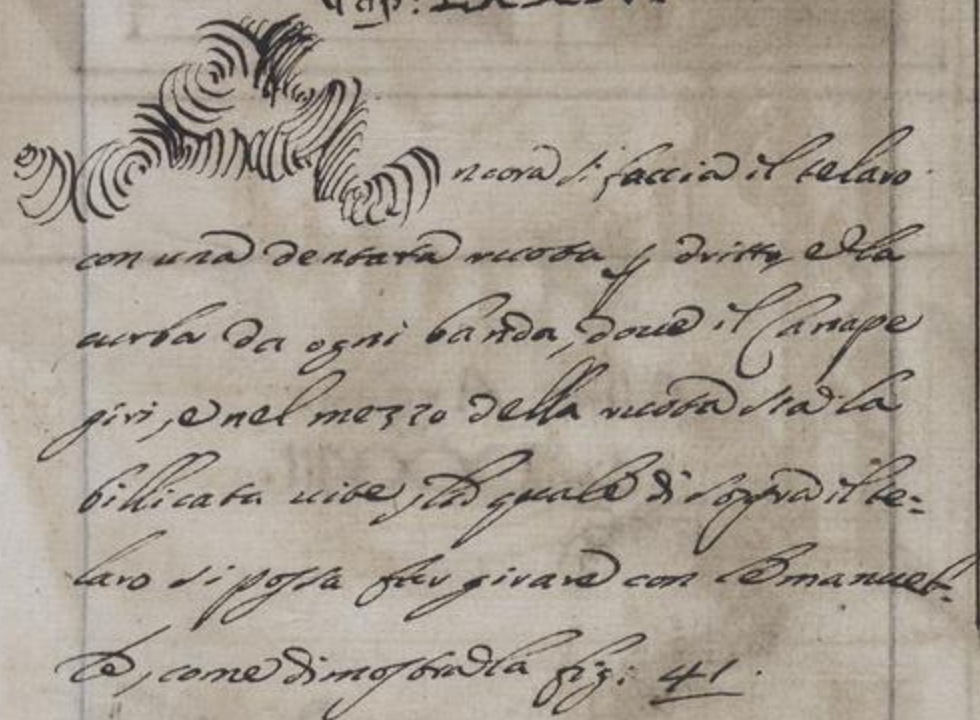 Cap:
Ancora si faccia il telaro
con una dentata ruota p dritto, e la
curba da ogni banda, doue il Canape
giri, e nel mezzo della ruota stia la
billicata uite, la quale di sopra il te=
laro si possa far girare con le manuel=
le, come dimostra la fig: 41.